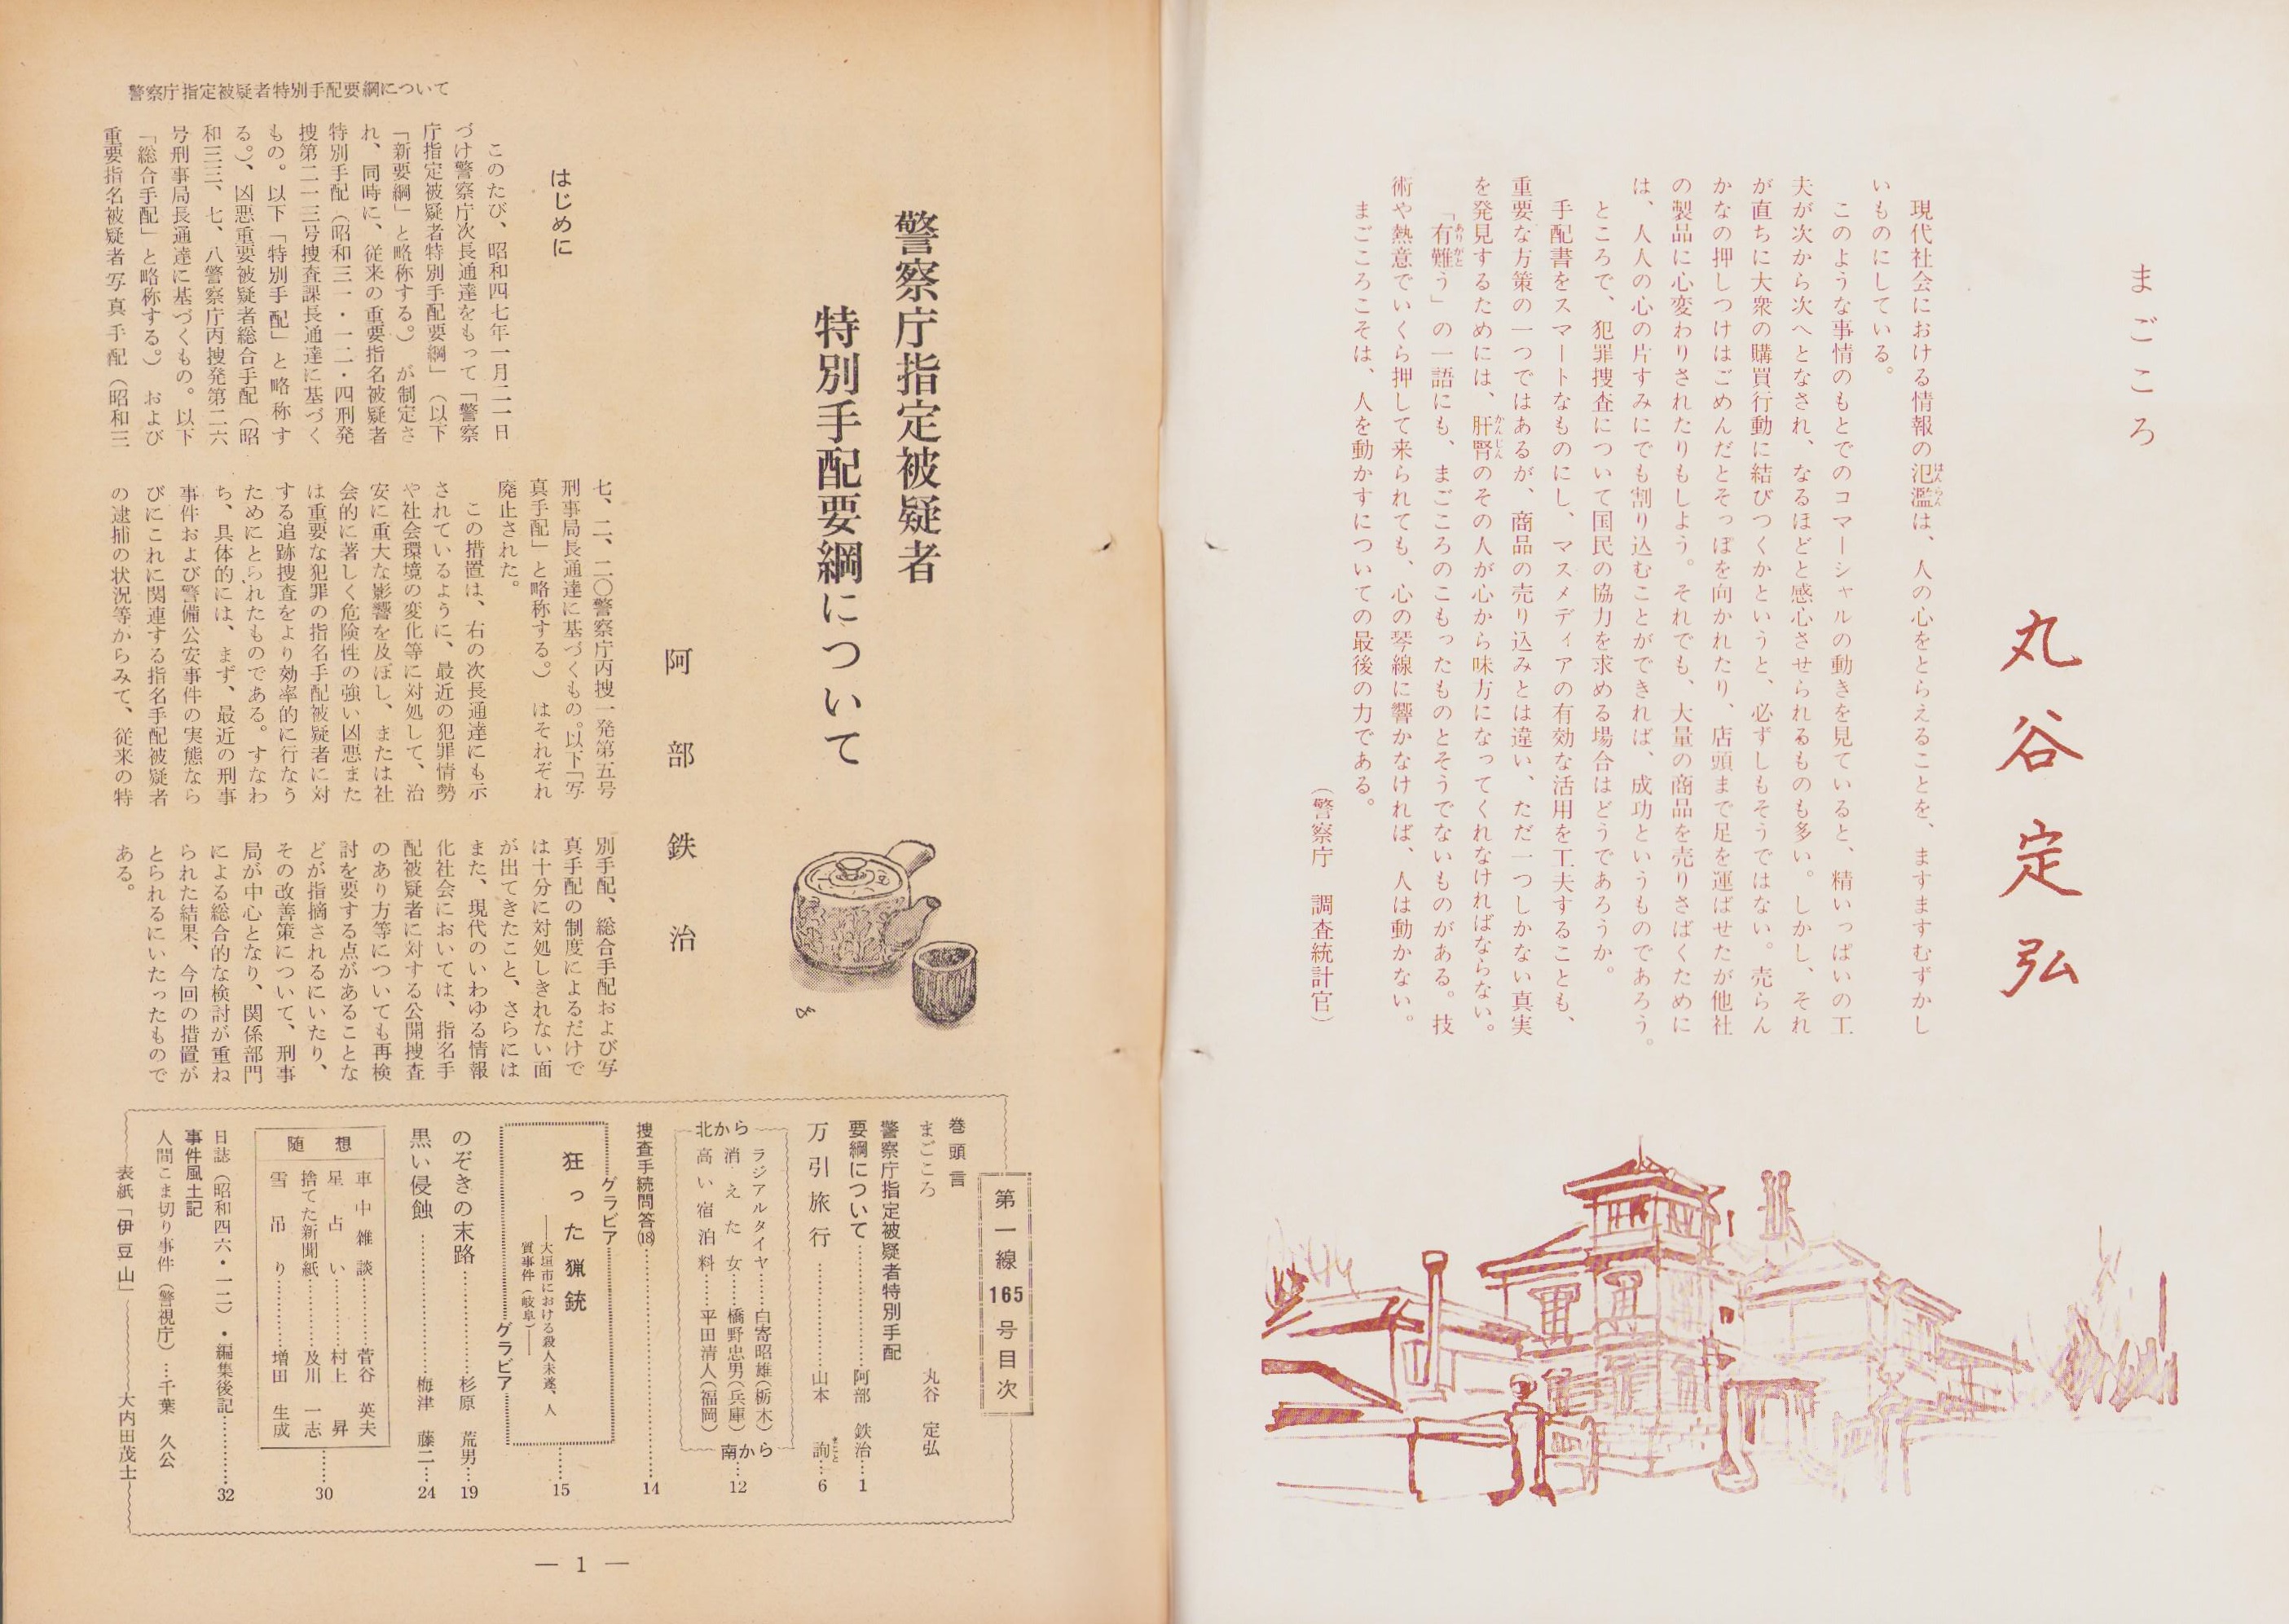 まごころ
丸谷定弘
現代社会における情報の氾濫は、人の心をとらえることを、ますますむずかし
いものにしている。
このような事情のもとでのコマーシャルの動きを見ていると、精いっぱいの工
夫が次から次へとなされ、なるほどと感心させられるものも多い。しかし、それ
が直ちに大衆の購買行動に結びつくかというと、必ずしもそうではない。売らん
かなの押しつけはごめんだとそっぽを向かれたり、店頭まで足を運ばせたが他社
の製品に心変わりされたりもしよう。それでも、大量の商品を売りさばくために
は、人人の心の片すみにでも割り込むことができれば、成功というものであろう。
ところで、犯罪捜査について国民の協力を求める場合はどうであろうか。
手配書をスマートなものにし、マスメディアの有効な活用を工夫することも、
重要な方策の一つではあるが、商品の売り込みとは違い、ただ一つしかない真実
を発見するためには、肝腎のその人が心から味方になってくれなければならない。
「有難う」の一語にも、まごころのこもったものとそうでないものがある。技
術や熱意でいくら押して来られても、心の琴線に響かなければ、人は動かない。
まごころこそは、人を動かすについての最後の力である。
（警察庁　調査統計官）
警察庁指定被疑者特別手配要綱について
警察庁指定被疑者
特別手配要綱について
阿部鉄治
はじめに
このたび、昭和四七年一月二一日
づけ警察庁次長通達をもって「警察
庁指定被疑者特別手配要綱」（以下
「新要綱」と略称する。）が制定さ
れ、同時に、従来の重要指名被疑者
特別手配（昭和三一・一二・四刑発
捜第二一三号捜査課長通達に基づく
もの。以下「特別手配」と略称す
る。）、凶悪重要被疑者総合手配（昭
和三三、七、八警察庁丙捜発第二六
号刑事局長通達に基づくもの。以下
「総合手配」と略称する。）および
重要指名被疑者写真手配（昭和三
七、二、二〇警察庁丙捜一発第五号
刑事局長通達に基づくもの。以下「写
真手配」と略称する。）はそれぞれ
廃止された。
この措置は、右の次長通達にも示
されているように、最近の犯罪情勢
や社会環境の変化等に対処して、治
安に重大な影響を及ぼし、または社
会的に著しく危険性の強い凶悪また
は重要な犯罪の指名手配被疑者に対
する追跡捜査をより効率的に行なう
ためにとられたものである。すなわ
ち、具体的には、まず、最近の刑事
事件および警備公安事件の実態なら
びにこれに関連する指名手配被疑者
の逮捕の状況等からみて、従来の特
別手配、総合手配および写
真手配の制度によるだけで
は十分に対処しきれない面
が出てきたこと、さらには
また、現代のいわゆる情報
化社会においては、指名手
配被疑者に対する公開捜査
のあり方等についても再検
討を要する点があることな
どが指摘されるにいたり、
その改善策について、刑事
局が中心となり、関係部門
による総合的な検討が重ね
られた結果、今回の措置が
とられるにいたったもので
ある。
第一線165号目次
巻頭言
まごころ　丸谷　定弘
警察庁指定被疑者特別手配
要綱について……………阿部　鉄治…1
万引旅行……………山本　詢…6
まこと
北から
ラジアルタイヤ……白寄昭雄（栃木）
消えた女……橋野忠男（兵庫）
高い宿泊料……平田清人（福岡）
南から…12
捜査手続問答(18)……………14
グラビア
狂った猟銃
——大垣市における殺人未遂、人
質事件（岐阜）——
グラビア
……15
のぞきの末路……………杉原　荒男…19
黒い侵蝕……………梅津　藤二…24
随想
車中雑談……………菅谷　英夫
星占い……………村上　昇
捨てた新聞紙……………及川　一志
雪吊り……………増田　生成
……30
日誌（昭和四六・一二）・編集後記……………32
事件風土記
人間こま切り事件（警視庁）…千葉　久公
表紙「伊豆山」　大内田茂士
— 1 —